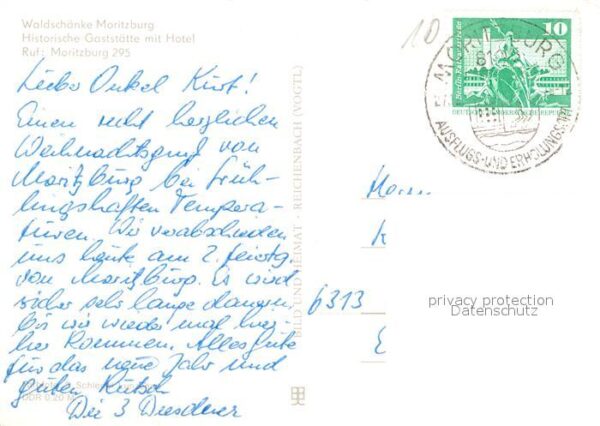 Waldschänke Moritzburg
Historische Gaststätte mit Hotel
Ruf: Moritzburg 295
Lieber Onkel Kurt!
Einen recht herzlichen
Weihnachtsgruß von
Moritzburg bei früh-
lingshaften Tempera-
turen. Wir verabschieden
uns heute am 2. Feiertg.
von Moritzburg. Es wird
sicher sehr lange dauern
bis wir wieder mal hier-
her kommen. Alles Gute
für das neue Jahr und
guten Rutsch
Die 3 Dresdener
BILD UND HEIMAT · REICHENBACH (VOGTL)
10
10
MORITZBURG
AUSFLUGS- UND ERHOLUNGS
Herrn
K
6313
E
privacy protection
Datenschutz